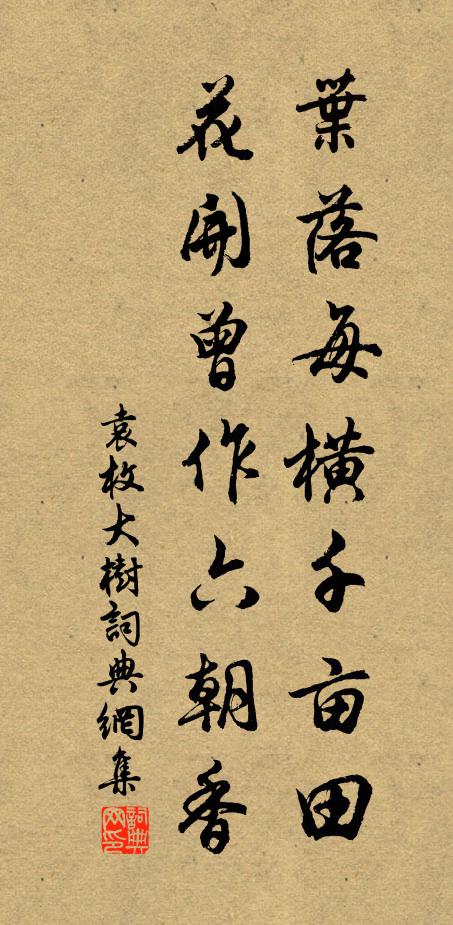 葉落每橫千亩田
花開曾作六朝香
袁枚大樹詞典網集
詞典网印